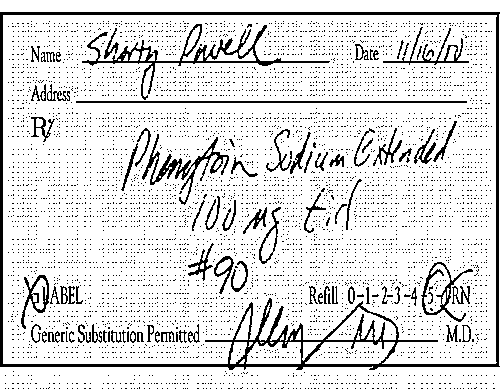 Name Sharty Powell Date 11/16/10
Address
Rx
Phenytoin Sodium Extended
100 mg tid
#90
LABEL Refill 0-1-2-3-4-5-PRN
Generic Substitution Permitted M.D.